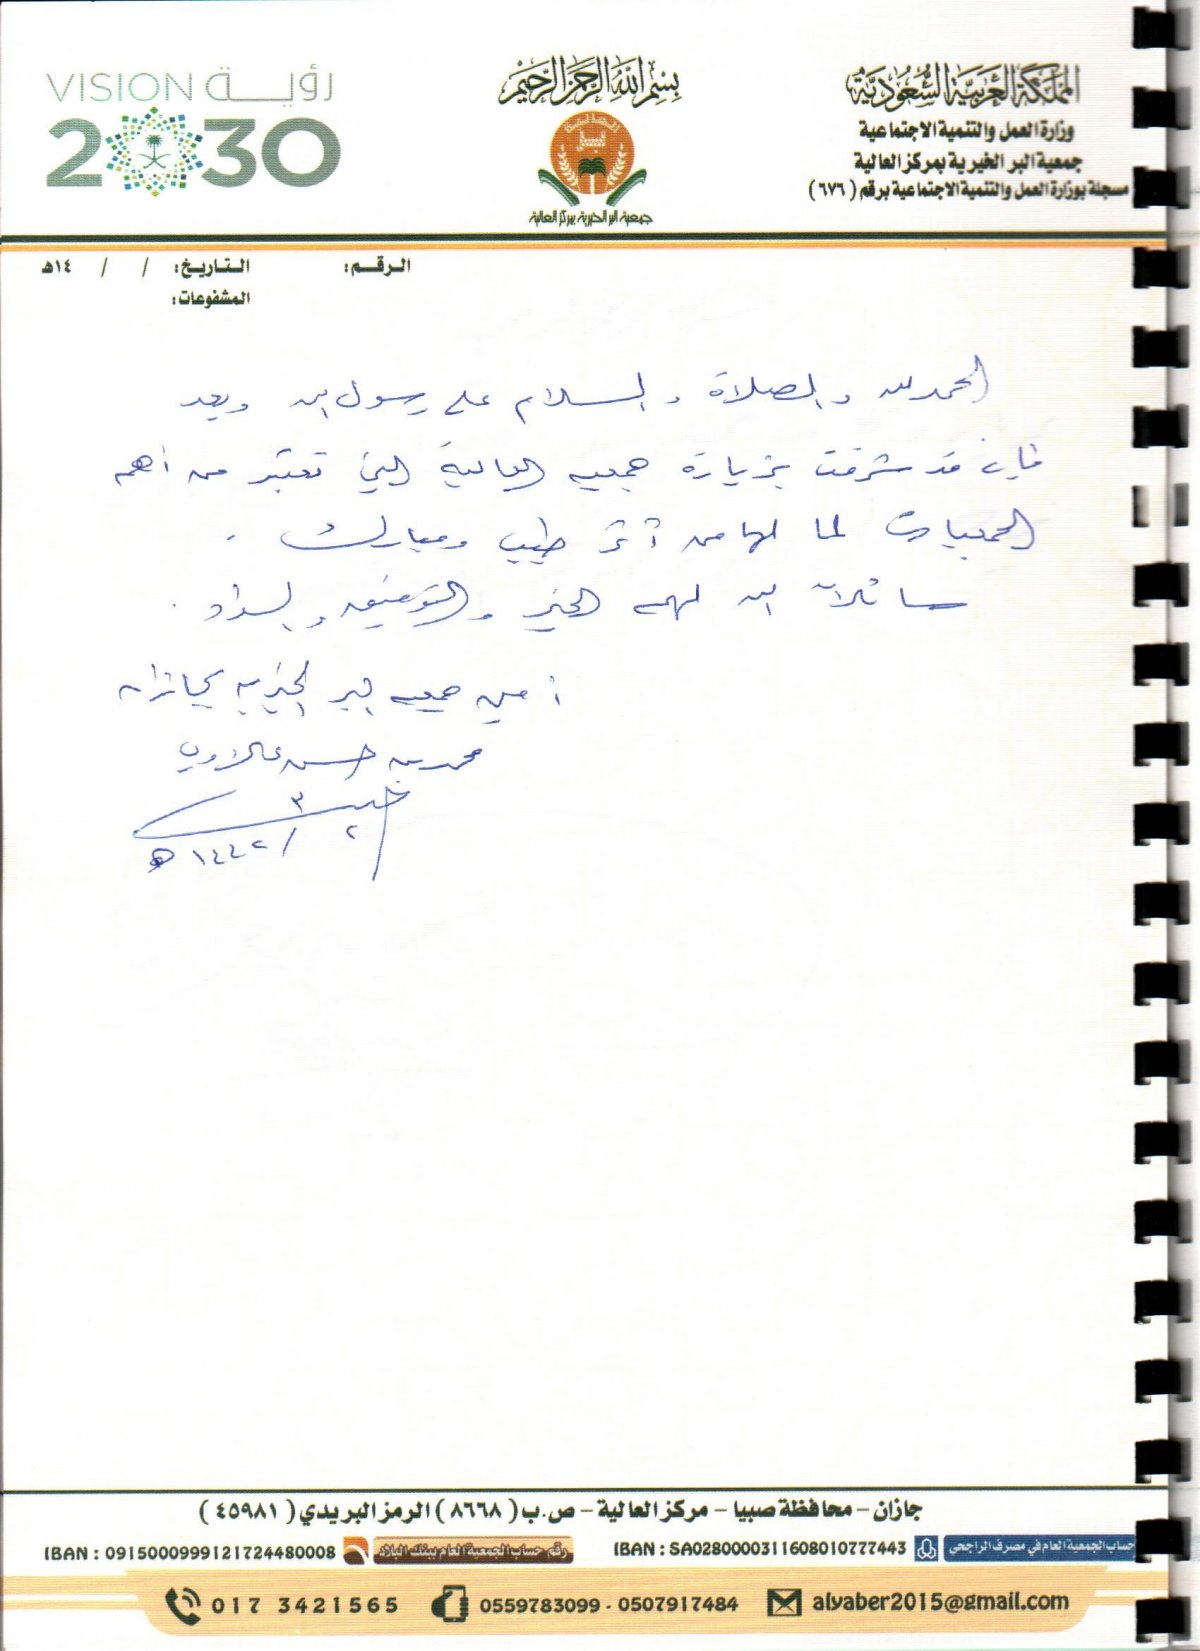 المملكة العربية السعودية
وزارة العمل والتنمية الاجتماعية
جمعية البر الخيرية بمركز العالية
مسجلة بوزارة العمل والتنمية الاجتماعية برقم ( ٦٧٦ )
بسم الله الرحمن الرحيم
جمعية البر الخيرية بمركز العالية
VISION رؤيـــة
2030
الـرقـم:
التـاريـخ: / / ١٤هـ
المشفوعات:
الحمد لله والصلاة والسلام على رسول الله وبعد
فإني قد شرفت بزيارة جمعية العالية التي تعتبر من أهم
الجمعيات لما لها من أثر طيب ومبارك .
سائلاً الله لهم الخير والتوفيق والسداد .
أمين جمعية البر الخيرية بجازان
محمد بن حسن
٣ / ٢ / ١٤٤٢ هـ
جازان - محافظة صبيا - مركز العالية - ص.ب ( ٨٦٦٨ ) الرمز البريدي ( ٤٥٩٨١ )
حساب الجمعية العام في مصرف الراجحي IBAN : SA0280000311608010777443
رقم حساب الجمعية العام ببنك البلاد IBAN : 0915000999121724480008
017 3421565
0559783099 - 0507917484
alyaber2015@gmail.com